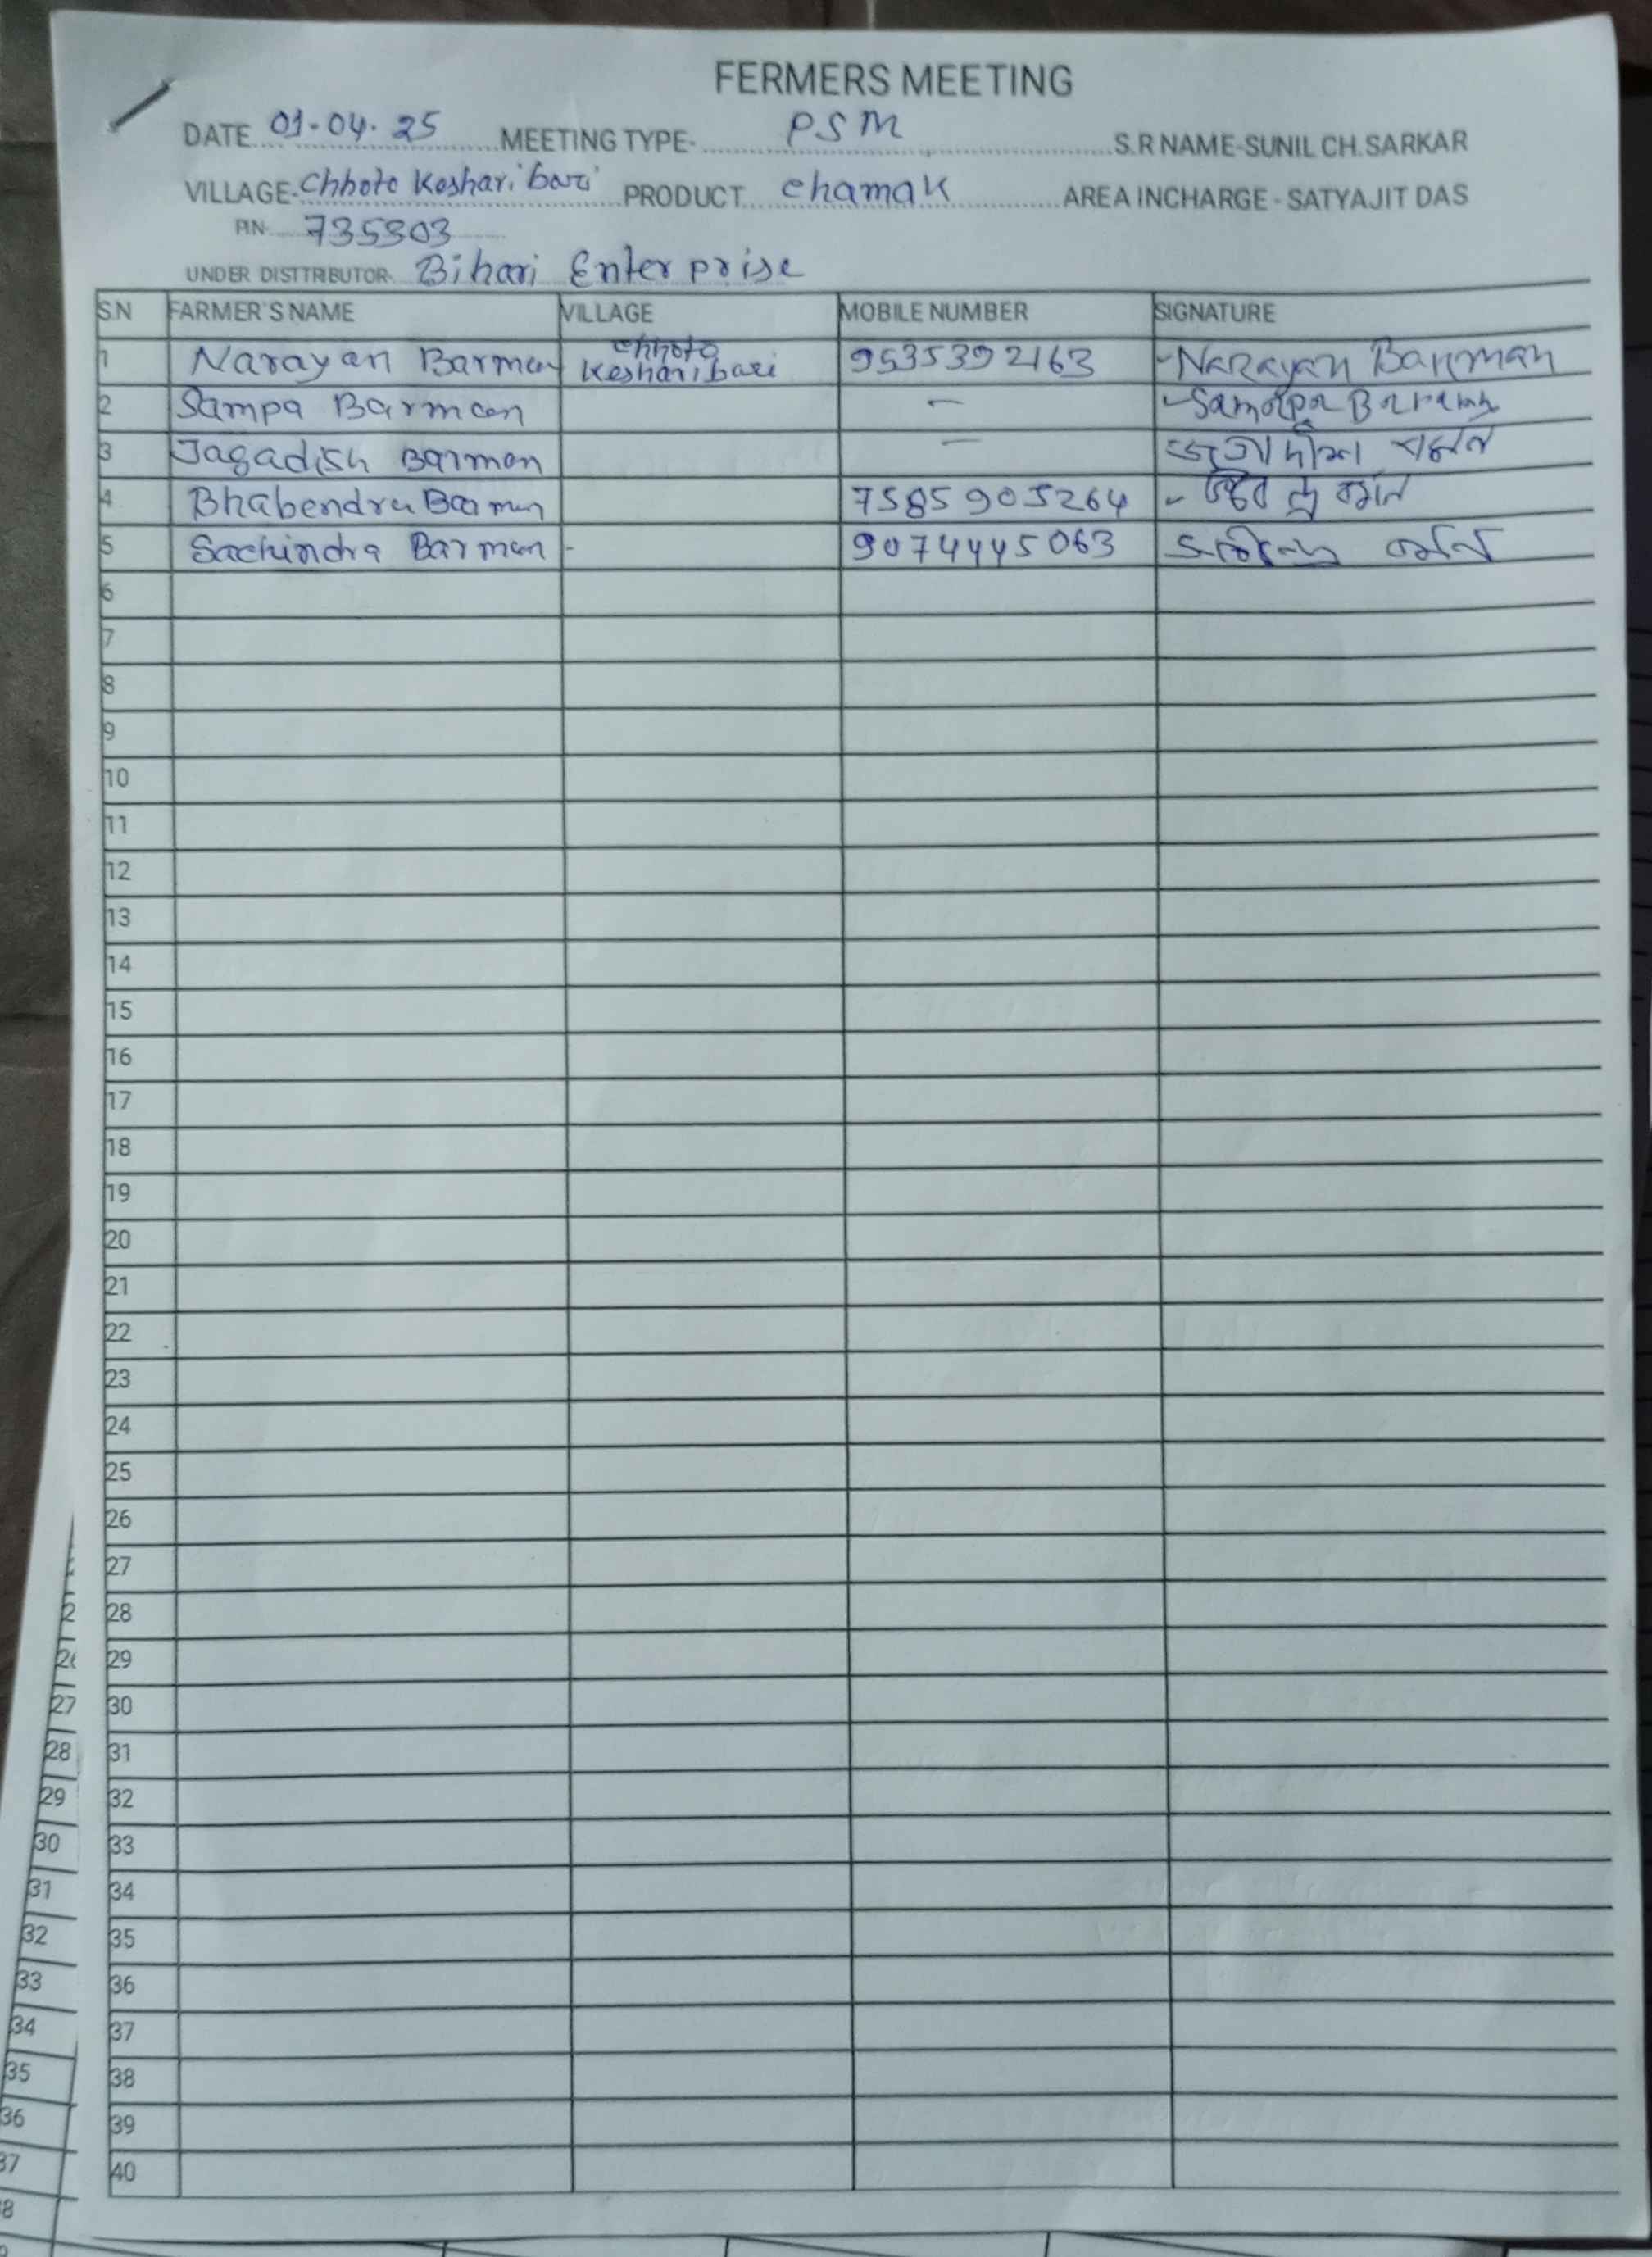 FERMERS MEETING
DATE 01-04-25 MEETING TYPE- PSM S.R NAME-SUNIL CH. SARKAR
VILLAGE- Chhoto Kesharibari PRODUCT chamak AREA INCHARGE - SATYAJIT DAS
PIN 735303
UNDER DISTTRIBUTOR Bihari Enterprise
S.N FARMER'S NAME VILLAGE MOBILE NUMBER SIGNATURE
1 Narayan Barman chhoto Kesharibari 9535392163 Narayan Barman
2 Sampa Barman - Barman
3 Jagadish Barman - জগদীশ বর্মন
4 Bhabendra Barman 7585905264 বর্মন
5 Sachindra Barman - 9074445063 বর্মন
6
7
8
9
10
11
12
13
14
15
16
17
18
19
20
21
22
23
24
25
26
27
28
29
30
31
32
33
34
35
36
37
38
39
40
27
28
29
30
31
32
33
34
35
36
37